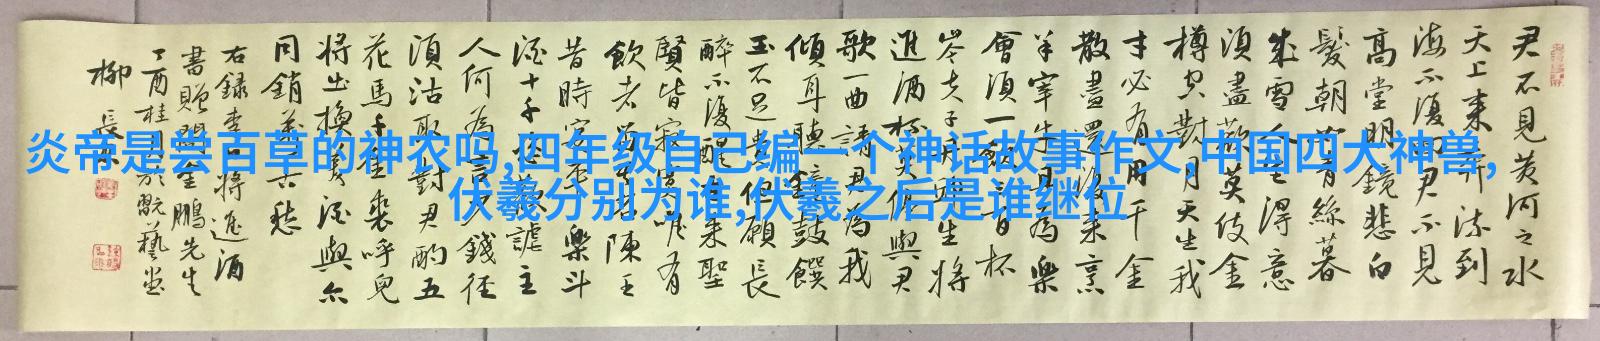 炎帝是尝百草的神农吗,四年级自己编一个神话故事作文,中国四大神兽,
伏羲分别为谁,伏羲之后是谁继位
君不見黃河之水
天上来奔流到
海不復回君不見
高堂明鏡悲白
髮朝如青絲暮
成雪人生得意
須盡歡莫使金
樽空對月天生我
才必有用千金
散盡還復来烹
羊宰牛且為樂
會須一飲三百杯
岑夫子丹丘生將
進酒杯莫停與君
歌一曲請君為我
傾耳聽鐘鼓饌
玉不足貴但願長
醉不復醒古来聖
賢皆寂寞唯有
飲者留其名陳王
昔時宴平樂斗
酒十千恣歡謔主
人何為言少錢徑
須沽取對君酌五
花馬千金裘呼兒
將出換美酒與尒
同銷萬古愁
右録李白將進酒
書贈鵬先生
丁酉桂月於翫藝堂
柳長